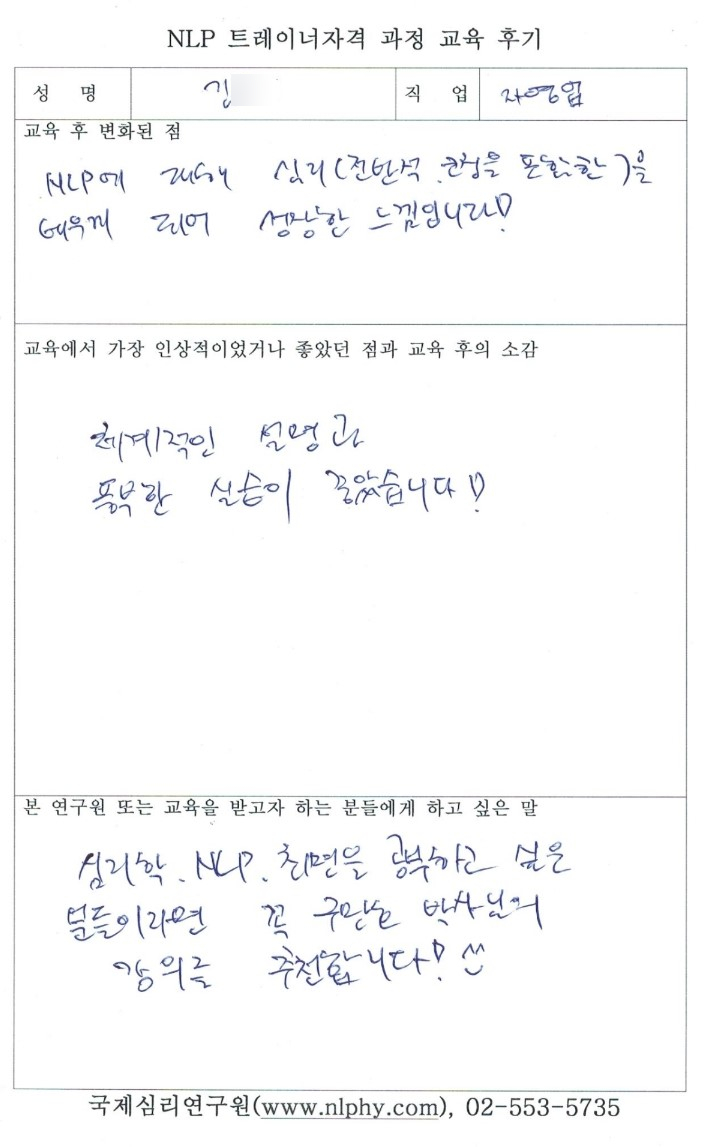 NLP 트레이너자격 과정 교육 후기
성 명 김 직 업 자영업
교육 후 변화된 점
NLP에 대해 심리(전반적, 관점을 포함한)을
배우게 되어 성장한 느낌입니다!
교육에서 가장 인상적이었거나 좋았던 점과 교육 후의 소감
체계적인 설명과
풍부한 실습이 좋았습니다!
본 연구원 또는 교육을 받고자 하는 분들에게 하고 싶은 말
심리학, NLP, 최면을 공부하고 싶은
분들이라면 꼭 박사님의
강의를 추천합니다! ^^
국제심리연구원(www.nlphy.com), 02-553-5735